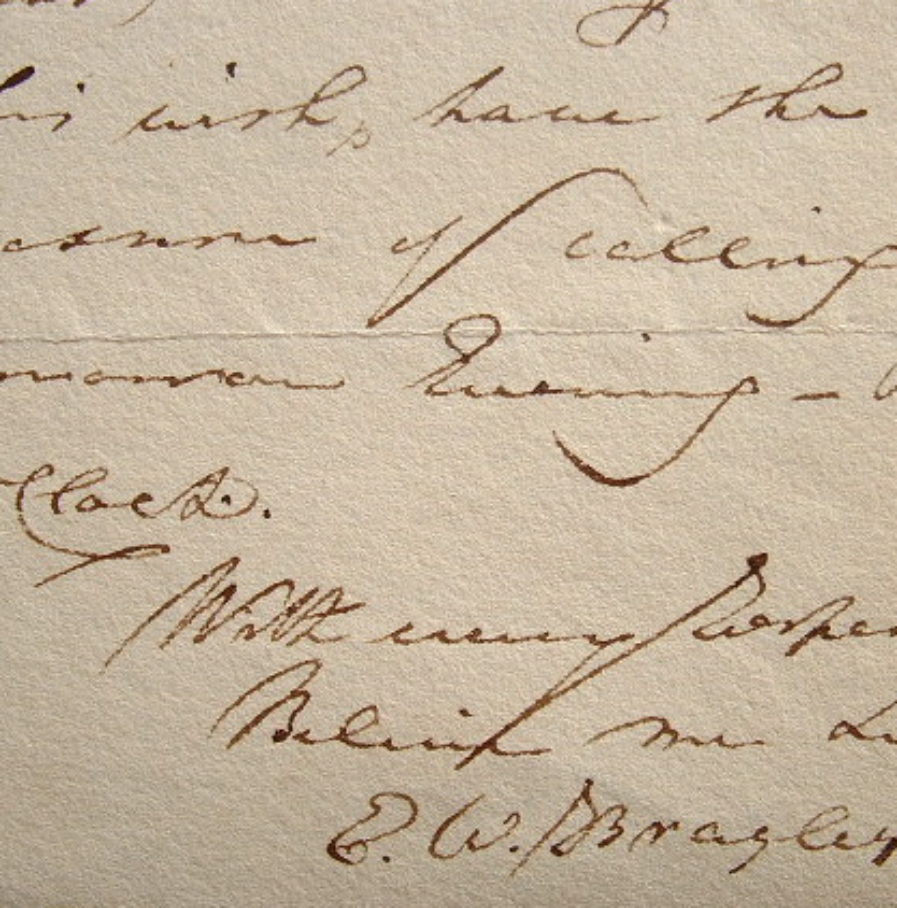 his wish, have the
of calling
Evening –
Clock.
With every Respec
Believe me
E. W. Brayley